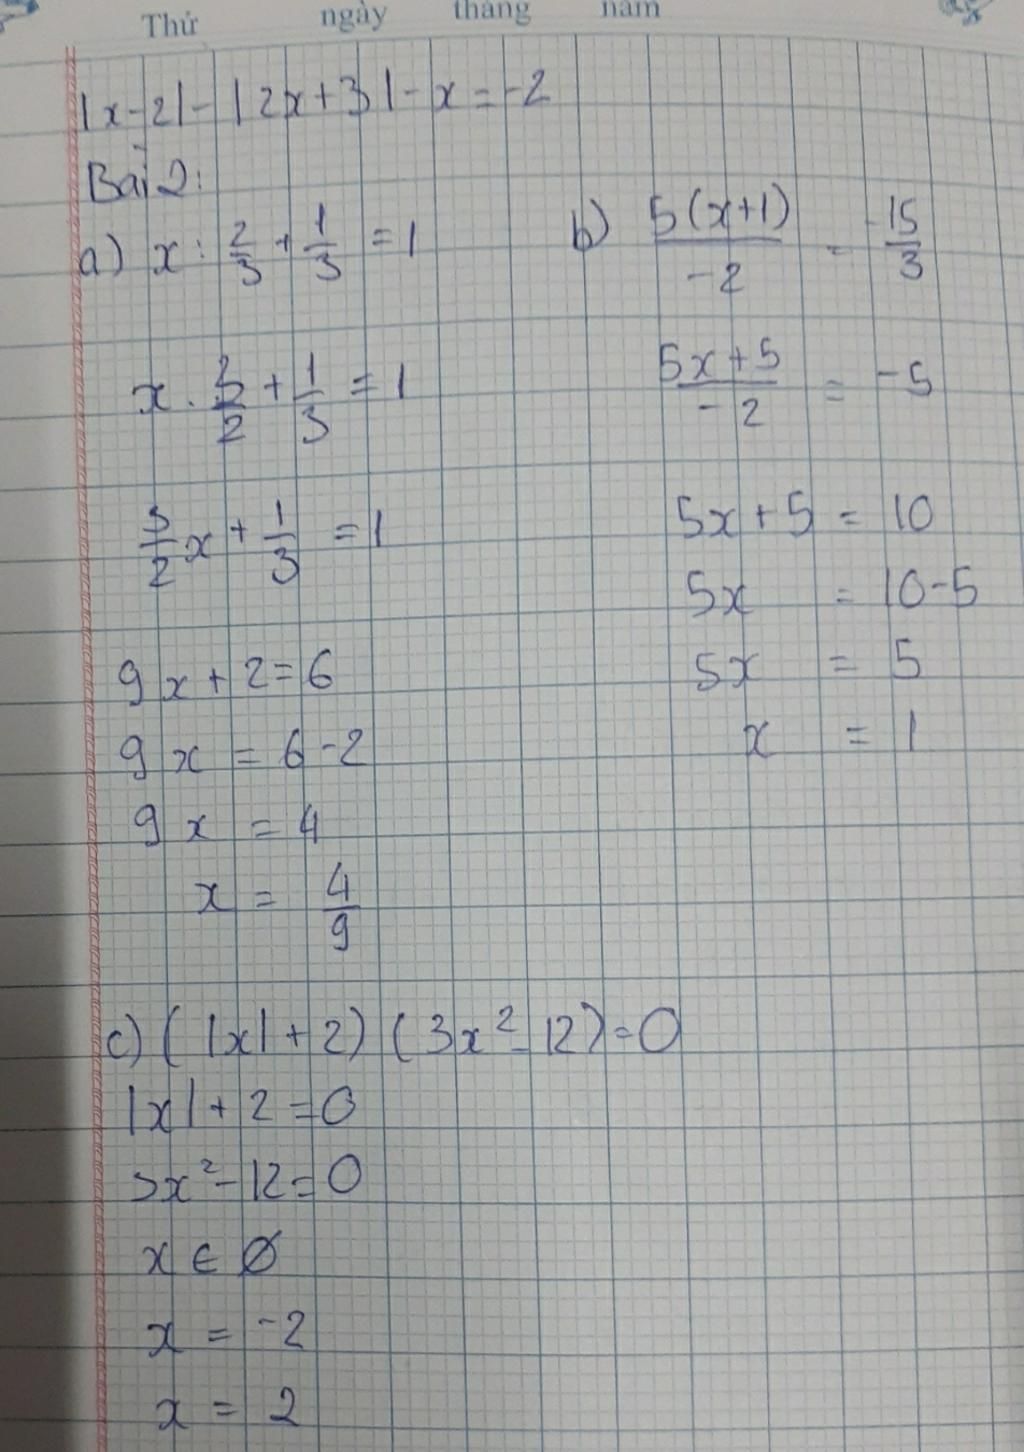 Thứ ngày tháng năm
|x-2|-|2x+3|-x=-2
Bài 2:
a) x : 2/3 + 1/3 = 1
x . 3/2 + 1/3 = 1
3/2 x + 1/3 = 1
9x+2=6
9x = 6-2
9x = 4
x = 4/9
b) 5(x+1)/-2 = -15/3
5x+5/-2 = -5
5x+5 = 10
5x = 10-5
5x = 5
x = 1
c) (|x|+2) (3x²-12)=0
|x|+2=0
3x²-12=0
x ∈ Ø
x = -2
x = 2